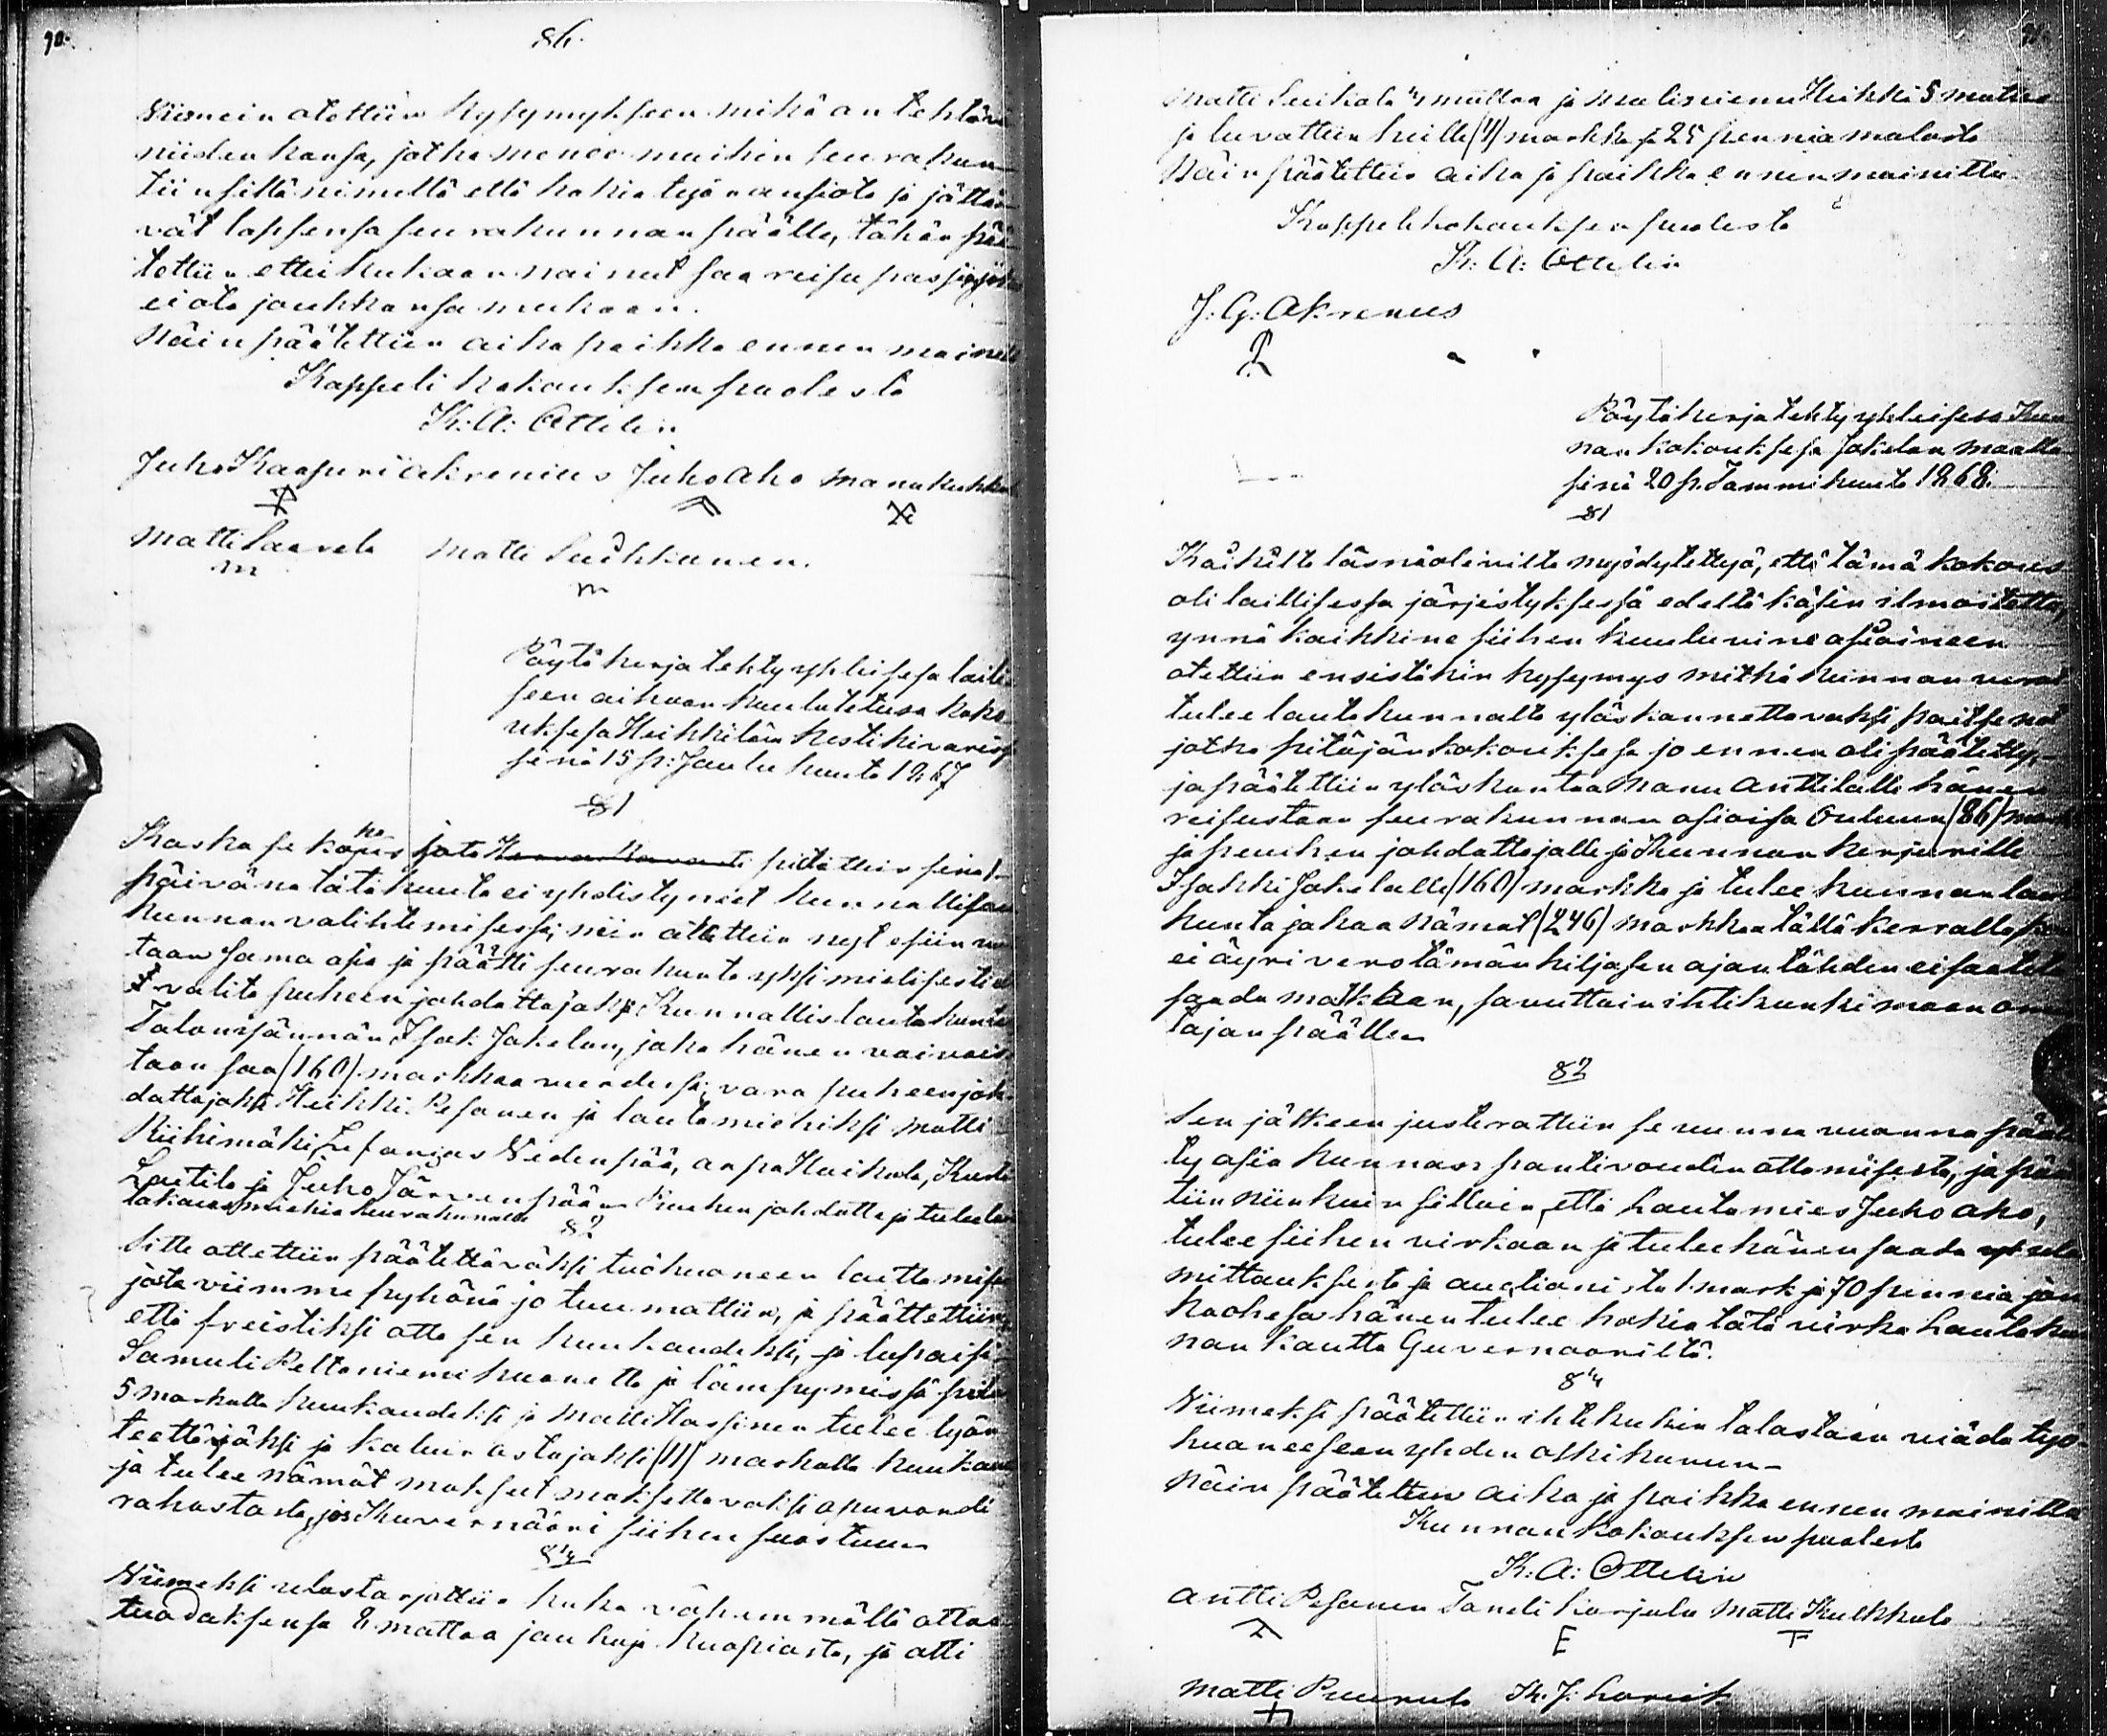 90.
§6.
Viimein otettiin kysymykseen mikä on tehtävä
niiden kansa, jotka menee muihin seurakun
tiin sillä nimellä että hakia työn ansiota ja jättä
vät lapsensa seurakunnan päälle, tähän pää
tettiin ettei kukaan nainut saa reisu passia jos
ei ota joukkansa mukaan.
Näin päätettiin aika paikka ennen mainittu
Kappeli kokouksen puolesta
K: A: Ottelin
Juho Kaapuri Akrenius Juho Aho Manu Kuhka
Matti Saarela Matti Leskkanen.
m m
Pöytäkirja tehty yhleisesä laili
seen aikaan kuulutetusa koko
uksesa Heikkilän kestikivarisa
senä 15 p: Joulu kuuta 1867
§1
Koska se kokous jota pidettiin senä 1
päivänä tätä kuuta ei yhdistyneet kunnallisen
kunnan valihtemisesa, niin otettiin nyt esiin
taan sama asia ja päätti seurakunta yksi mielisesti
valita puheenjohdattajaksi Kunnallislautakunta
Talonisännän Isak Jokelan, joka hänen vaivais
taan saa (160) markkaa vuodesa, vara puheenjoh
dattajaksi Heikki Pesonen ja lautamiehiksi Matti
Riihimäki, Zefanias Nedenpää, Aapa Haikola, Kusta
Laitila ja Juho Järvenpään Puheen johdattaja tulee
takausmiehiä seurakunnalle
§2
Sitte otettiin päätettäväksi työhuoneen laittamise
josta viimme pyhänä jo tuumattiin, ja päättettiin
että freistiksi otta sen kuukaudeksi, ja lupaisi
Samuli Peltoniemi huonetta ja lämpymissä pitä
5 markalla kuukaudeksi ja Matti Hassinen tulee työn
teettäjäksi ja kaluin ostajaksi (11) markalla kuukau
ja tulee nämät maksut maksettavaksi apuvoudi
rahastosta, jos Kuvernööri siihen suostuu
§4
Viimeksi ulostarjottiin kuka vähemmällä ottaa
tuodaksensa 8 mattoa jauhoja Kuopiosta, ja otti
Matti Leikola 4 mattoa ja Maliniemi Heikki 5 mattoa
ja luvattiin heille (4) markka ja 25 penniä matosta
Näin päätettiin aika ja paikka ennen mainittu
Kappelikokouksen puolesta
K: A: Ottelin
J: G: Akrenius
Pöytäkirja tehty yhleisesä Kun
nan kokouksesa Jokelan maalla
senä 20 p. Tammikuuta 1868.
§1
Kaikilta läsnäolevilta myödytettyä, että tämä kokous
oli laillisessa järjestyksessä edeltäkäsin ilmoitettu,
ynnä kaikkine siihen kuuluvine asiaineen
otettiin ensistäkin kysymys mitkä kunnan verot
tulee lautakunnalta yläskannettavaksi paitse ne
jotka pitäjänkokouksesa jo ennen oli päätetty,-
ja päätettiin yläskantaa Manu Anttilalle hänen
reisustaan seurakunnan asioisa Ouluun (86) mark
ja puuhen johdattajalle ja Kunnan kirjurille
Isakki Jokelalle (160) markka ja tulee kunnan lau
kunta jakaa nämät (246) markkaa tällä kerralla
ei äyri vero tämän kiljasen ajan tähden ei saateta
saada matkaan, savuttain ihtikunki maan om
tajan päälle
§2
Sen jälkeen justerattiin se vuonna pääte
ty asia kunnan pantivoudin ottamisesta, ja pää
tiin niinkuin silloin, että Lautamies Juho Aho,
tulee siihen virkaan ja tulee hänen saada
mittauksesta ja auctionista 1 mark ja 70 penniä jon
kaohesa hänen tulee hakia tätä virka Lautakun
nan kautta Guvernoorilta.
§4
Viimeksi päätettiin ihtekukin talostaan viädä työ-
huoneeseen yhden askikunun-
Näin päätettiin aika ja paikka ennen mainittu
Kunnankokouksen puolesta
K: A: Ottelin
Antti Pesonen Taneli Karjula Matti Kulkkula
Matti Puurula